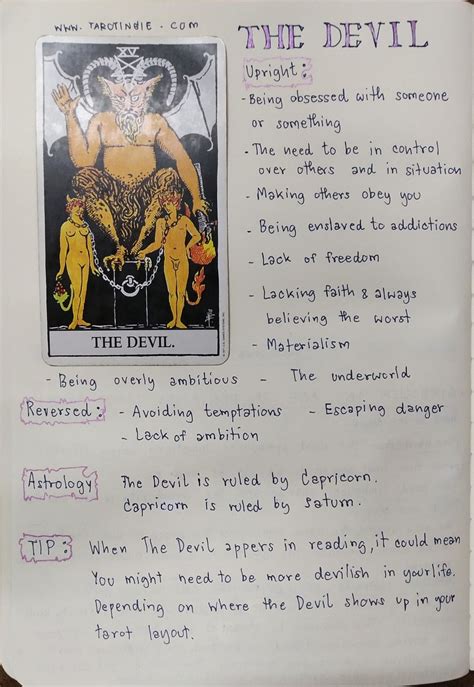 WWW. TAROTINDIE . COM
THE DEVIL
XV
THE DEVIL.
Upright:
- Being obsessed with someone
or something
- The need to be in control
over others and in situation
- Making others obey you
- Being enslaved to addictions
- Lack of freedom
- Lacking faith & always
believing the worst
- Materialism
- Being overly ambitious - The underworld
Reversed: - Avoiding temptations - Escaping danger
- Lack of ambition
Astrology The Devil is ruled by Capricorn.
Capricorn is ruled by Saturn.
TIP: When The Devil appers in reading, it could mean
You might need to be more devilish in your life.
Depending on where the Devil shows up in your
tarot layout.